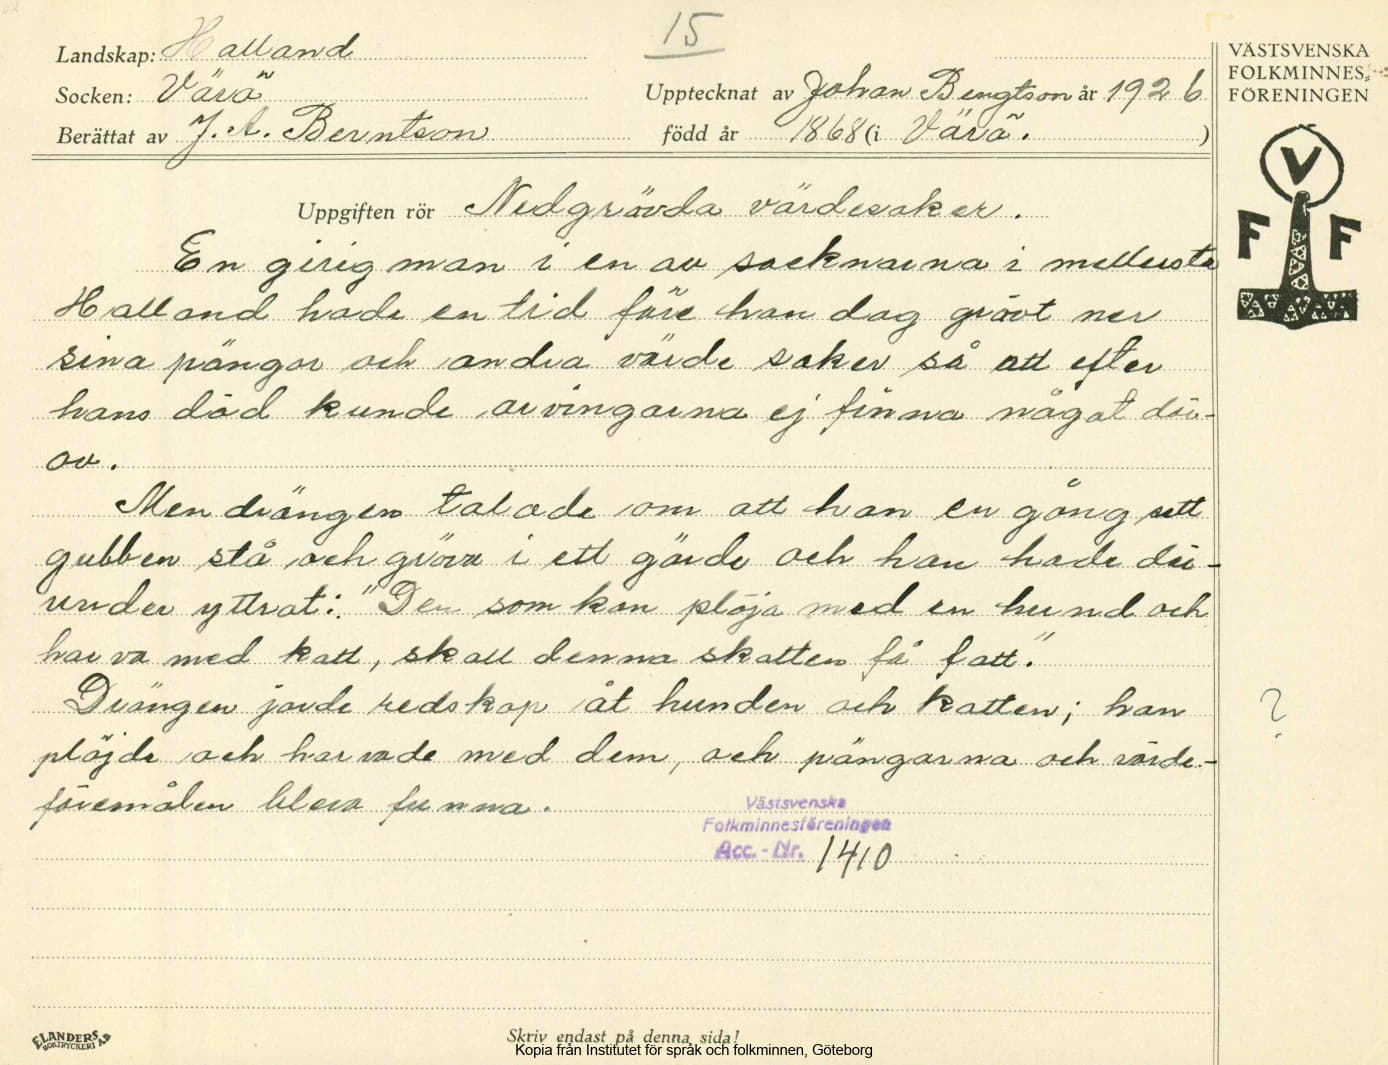 15
Landskap: Halland
VÄSTSVENSKA
FOLKMINNES-
FÖRENINGEN
Socken: Värö
Upptecknat av Johan Bengtson år 1926
Berättat av J. A. Berntson född år 1868 (i Värö. )
V
F F
Uppgiften rör Nedgrävda värdesaker.
En girig man i en av socknarna i mellersta
Halland hade en tid före han dog grävt ner
sina pängar och andra värde saker så att efter
hans död kunde arvingarna ej finna något där-
av.
Men drängen talade om att han en gång sett
gubben stå och gräva i ett gärde och han hade där-
under yttrat: "Den som kan plöja med en hund och
harva med katt, skall denna skatten få fatt."
Drängen jorde redskap åt hunden och katten; han
?
plöjde och harvade med dem, och pängarna och värde-
föremålen bleva funna.
Västsvenska
Folkminnesföreningen
Acc. - Nr. 1410
ELANDERS
BOKTRYCKERI AB
Skriv endast på denna sida!
Kopia från Institutet för språk och folkminnen, Göteborg